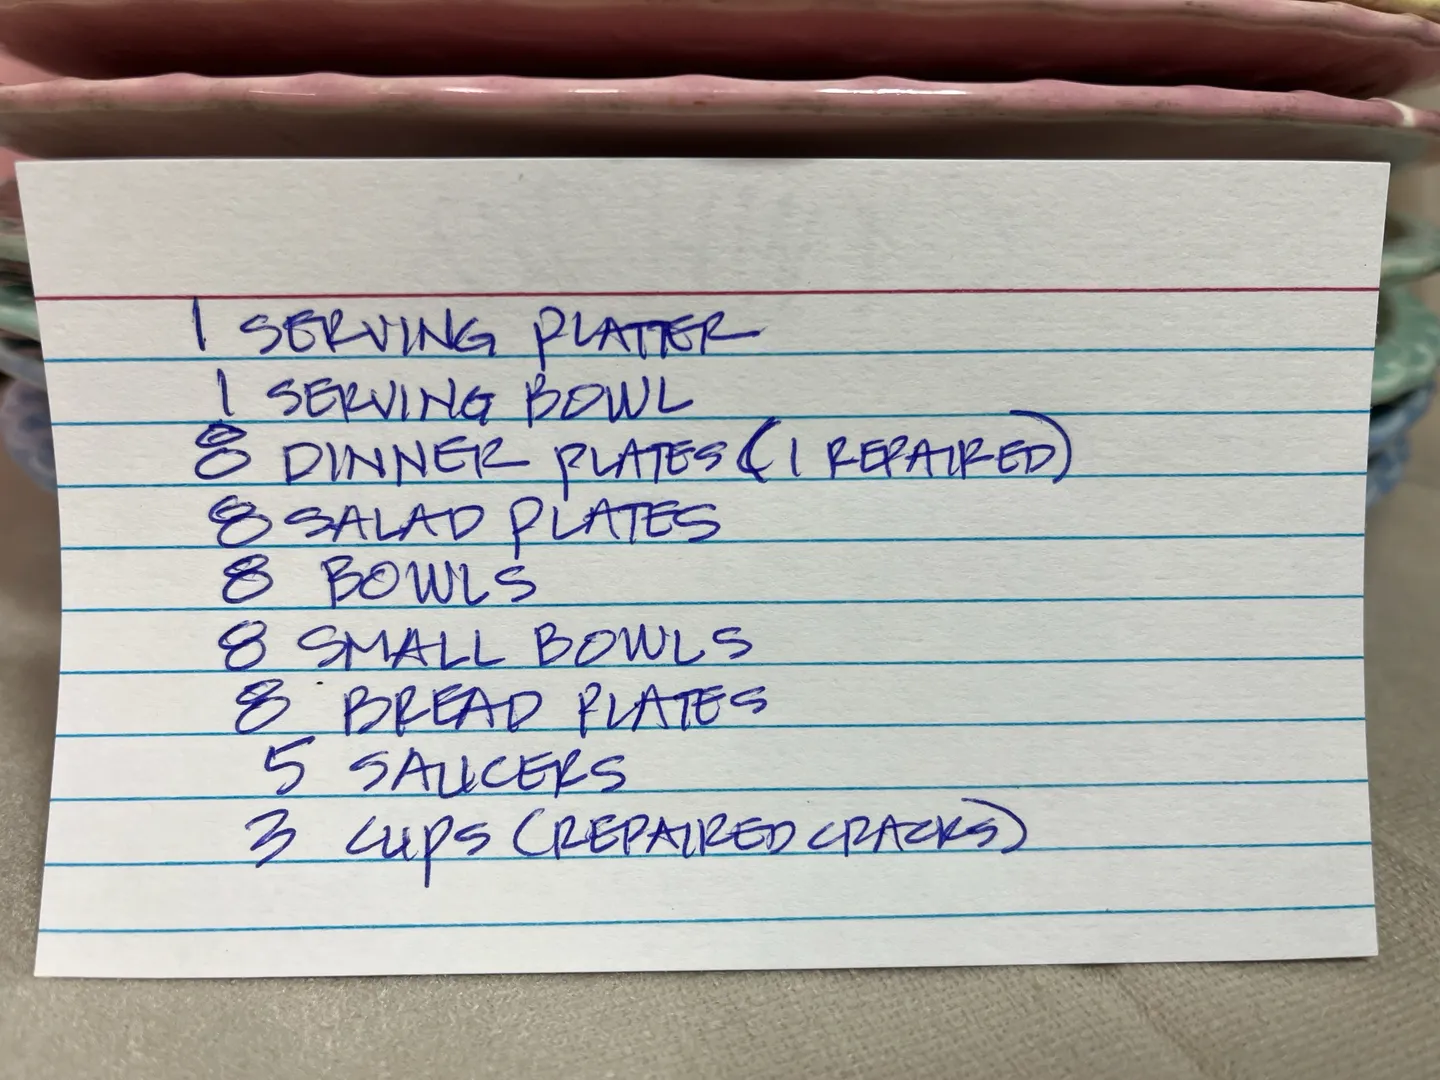 1 SERVING PLATTER
1 SERVING BOWL
8 DINNER PLATES (1 REPAIRED)
8 SALAD PLATES
8 BOWLS
8 SMALL BOWLS
8 BREAD PLATES
5 SAUCERS
3 CUPS (REPAIRED CRACKS)